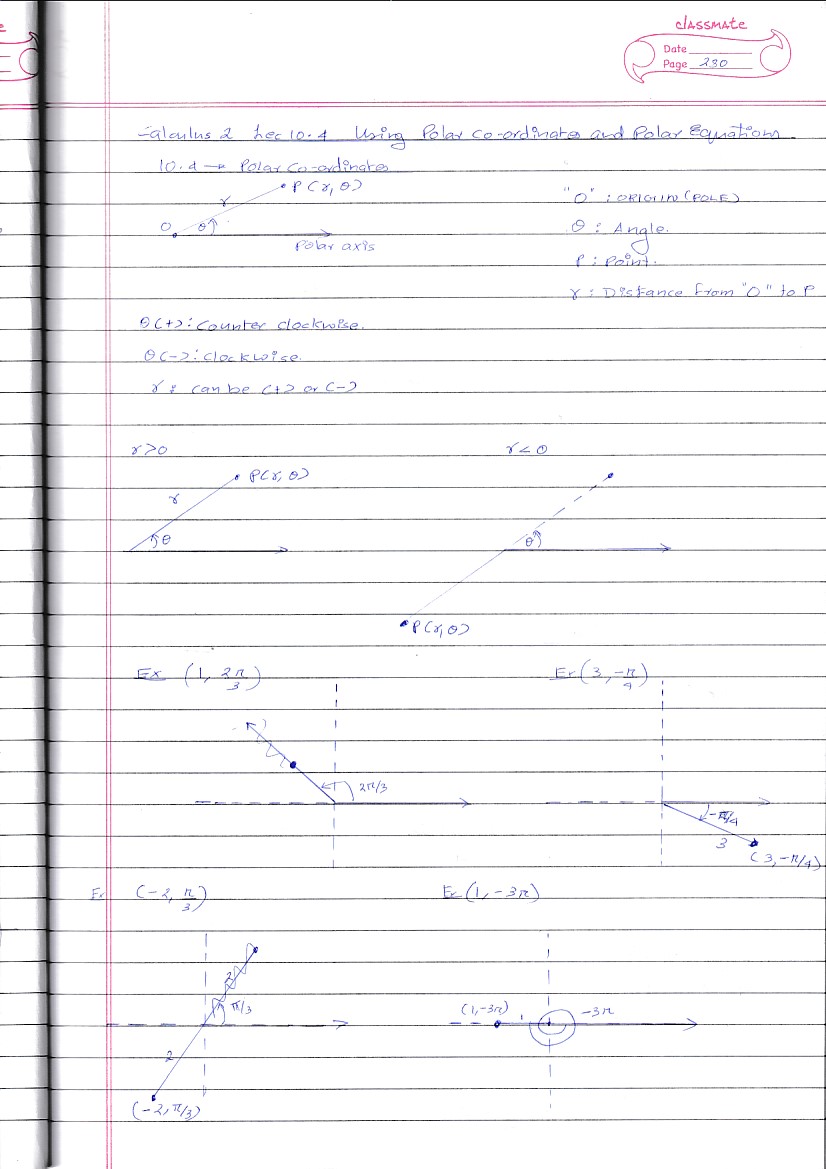 classmate
Date
Page 230
Calculus 2 Lec 10.4 Using Polar Co-ordinates and Polar Equations
10.4 → Polar Co-ordinates
P(r, θ)
r
O θ
Polar axis
"O" : ORIGIN (POLE)
θ : Angle.
P : Point.
r : Distance from "O" to P
θ(+) : Counter clockwise.
θ(-) : Clockwise.
r : can be (+) or (-)
r>0
r<0
P(r, θ)
r
θ
θ
P(r, θ)
Ex (1, 2π/3)
Ex (3, -π/4)
2π/3
-π/4
3
(3, -π/4)
Ex (-2, π/3)
Ex (1, -3π)
2
π/3
2
(-2, π/3)
(1, -3π)
1
-3π